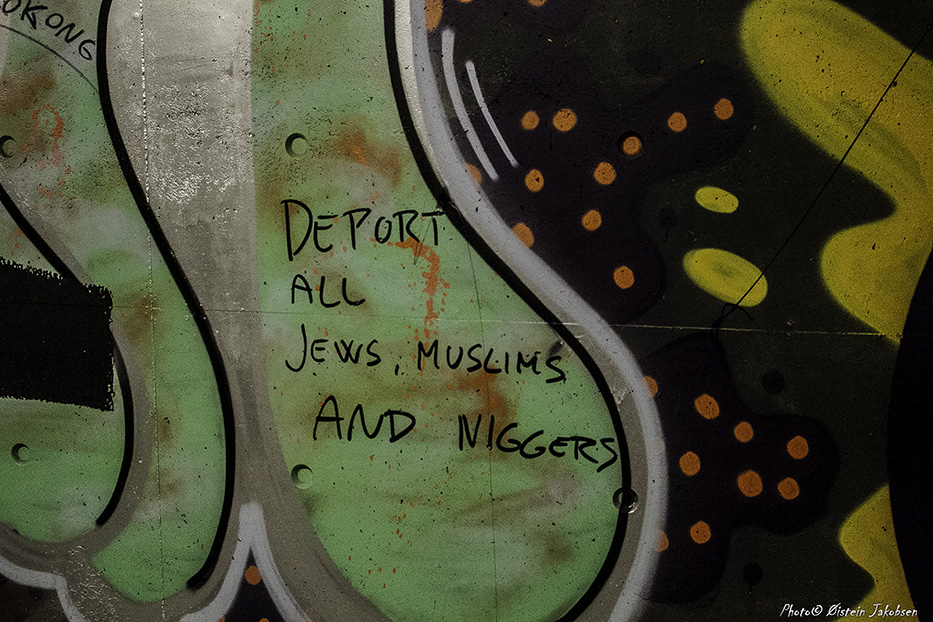 OKONG
DEPORT
ALL
JEWS, MUSLIMS
AND NIGGERS
Photo© Øistein Jakobsen